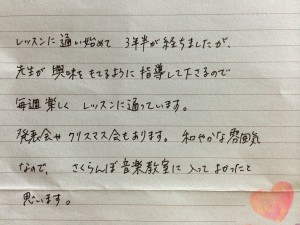 レッスンに通い始めて 3年半が経ちましたが、
先生が興味をもてるように指導して下さるので
毎週楽しく レッスンに通っています。
発表会や クリスマス会もあります。 和やかな雰囲気
なので、 さくらんぼ音楽教室に入ってよかったと
思います。